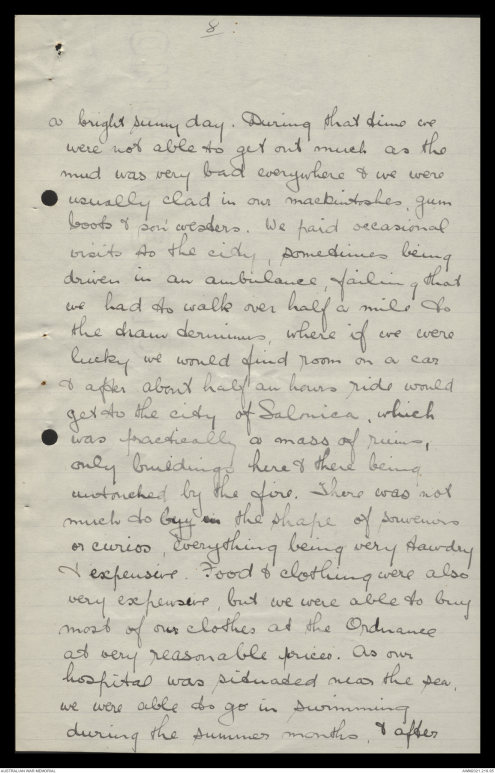 8.
a bright sunny day. During that time we
were not able to get out much as the
mud was very bad everywhere & we were
usually clad in our mackintoshes, gum
boots & sou' westers. We paid occasional
visits to the city, sometimes being
driven in an ambulance, failing that
we had to walk over half a mile to
the tram terminus, where if we were
lucky we would find room on a car
& after about half an hours ride would
get to the city of Salonica, which
was practically a mass of ruins,
only buildings here & there being
untouched by the fire. There was not
much to buy in the shape of souvenirs
or curios, everything being very tawdry
& expensive. Food & clothing were also
very expensive, but we were able to buy
most of our clothes at the Ordnance
at very reasonable prices. As our
hospital was situated near the sea,
we were able to go in swimming
during the summer months, & after
AUSTRALIAN WAR MEMORIAL